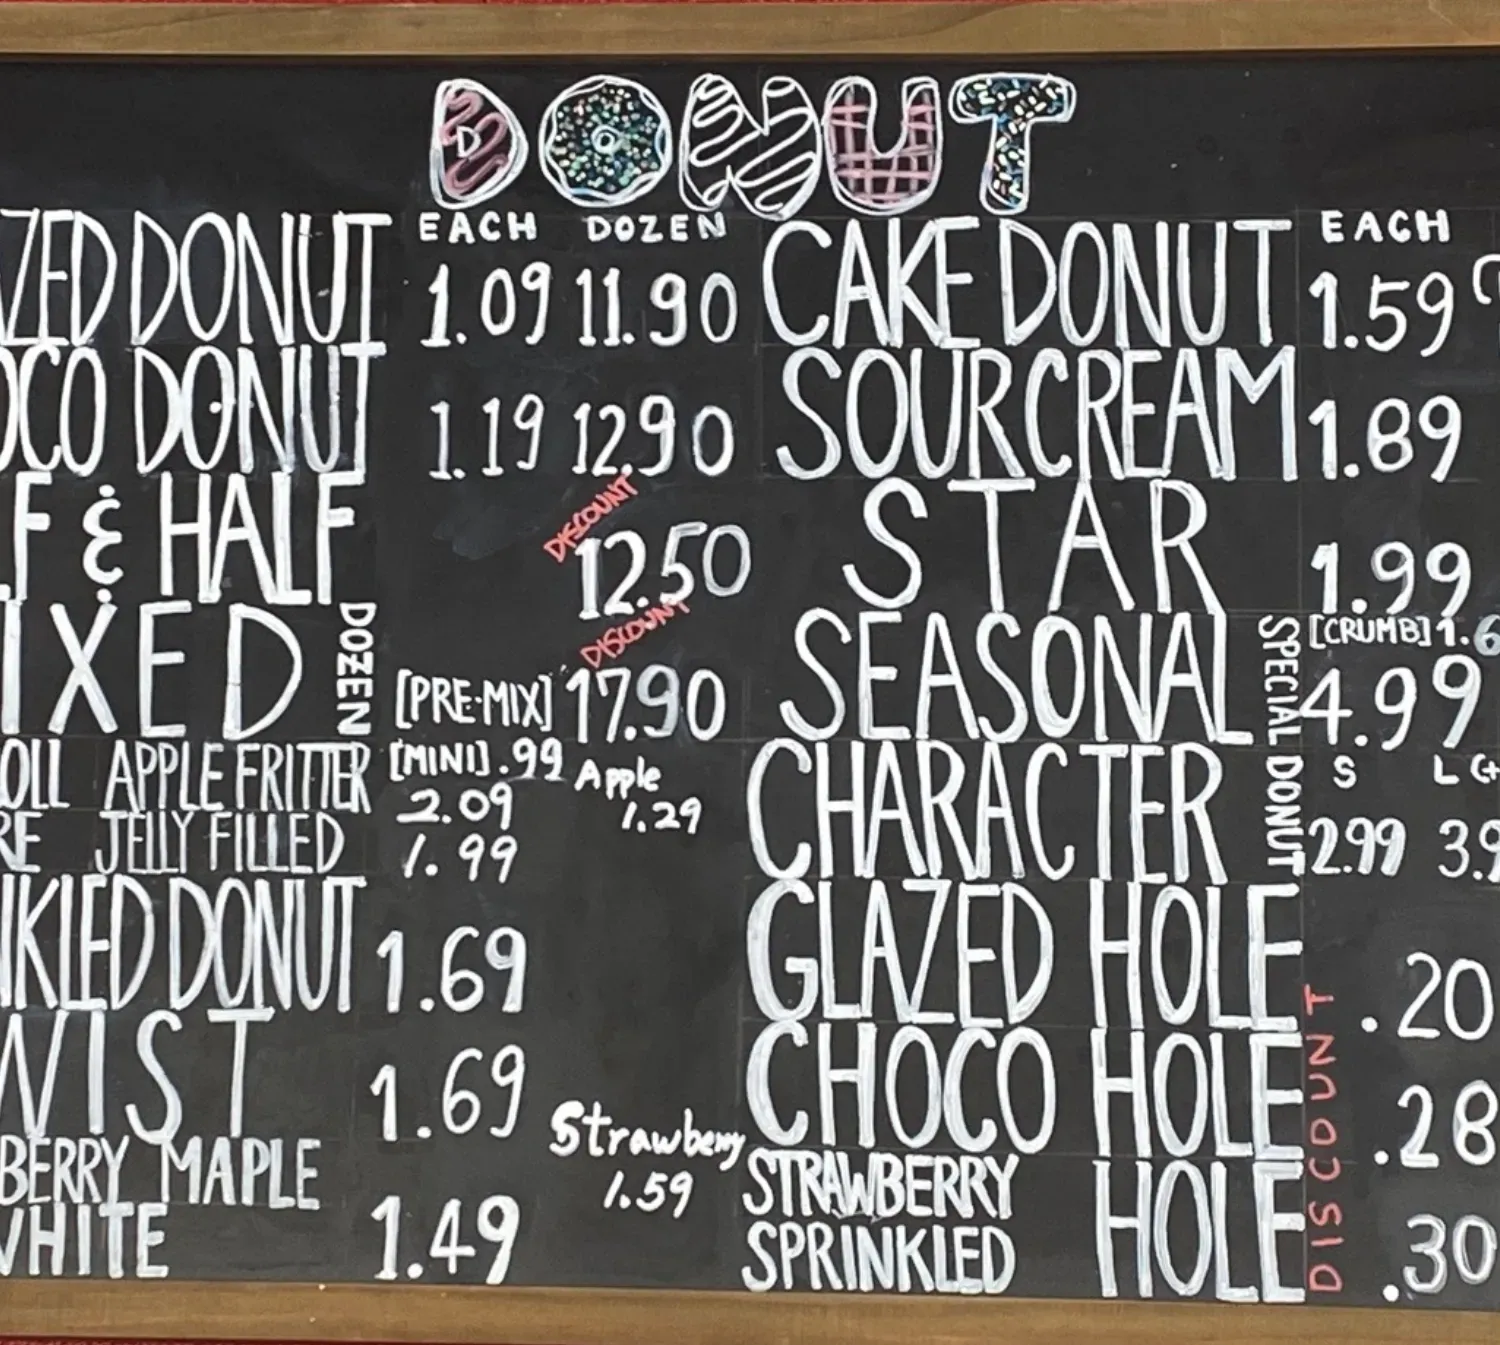 DONUT
EACH DOZEN
ZED DONUT 1.09 11.90
OCO DONUT 1.19 12.90
F & HALF DISCOUNT 12.50
IXED DOZEN [PRE-MIX] DISCOUNT 17.90
OLL APPLE FRITTER [MINI] .99 2.09 Apple 1.29
RE JELLY FILLED 1.99
NKLED DONUT 1.69
WIST 1.69
BERRY MAPLE
WHITE 1.49 Strawberry 1.59
EACH
CAKE DONUT 1.59
SOURCREAM 1.89
STAR 1.99
SEASONAL [CRUMB] 1.6
4.99
SPECIAL DONUT
S L (+
CHARACTER 2.99 3.9
GLAZED HOLE .20
CHOCO HOLE .28
STRAWBERRY
SPRINKLED HOLE .30
DISCOUNT